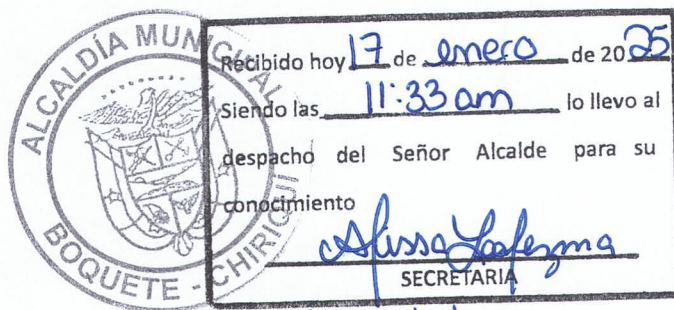 ALCALDÍA MUNICIPAL
BOQUETE - CHIRIQUÍ
Recibido hoy 17 de enero de 20 25
Siendo las 11:33 am lo llevo al
despacho del Señor Alcalde para su
conocimiento
SECRETARIA